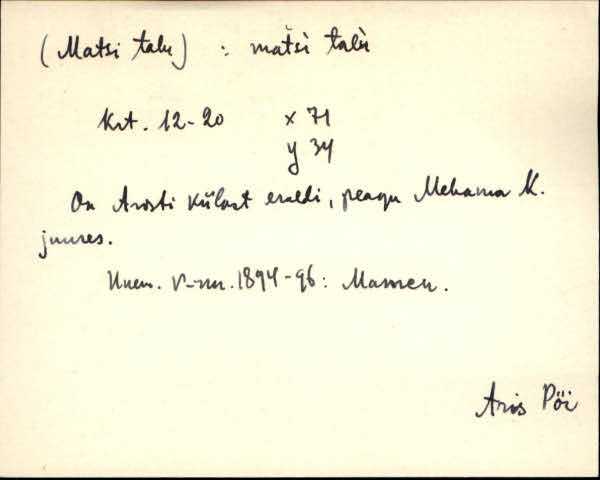 (Matsi talu) : mat̆sì talù
Krt. 12-20 x 71
y 34
On Arosti külast eraldi, peagu Mehama K.
juures.
1894-96:
Aris Pöi